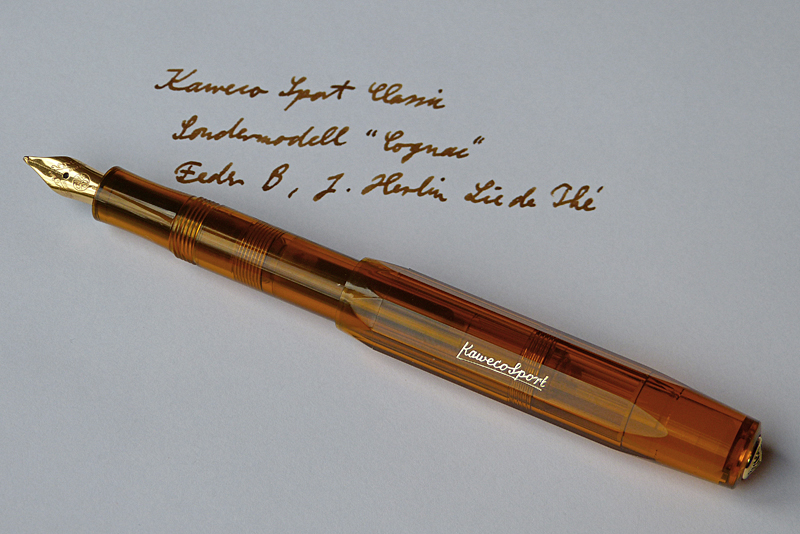 Kaweco Sport Classic
Sondermodell "Cognac"
Feder B, J. Herbin Lie de Thé
KawecoSport